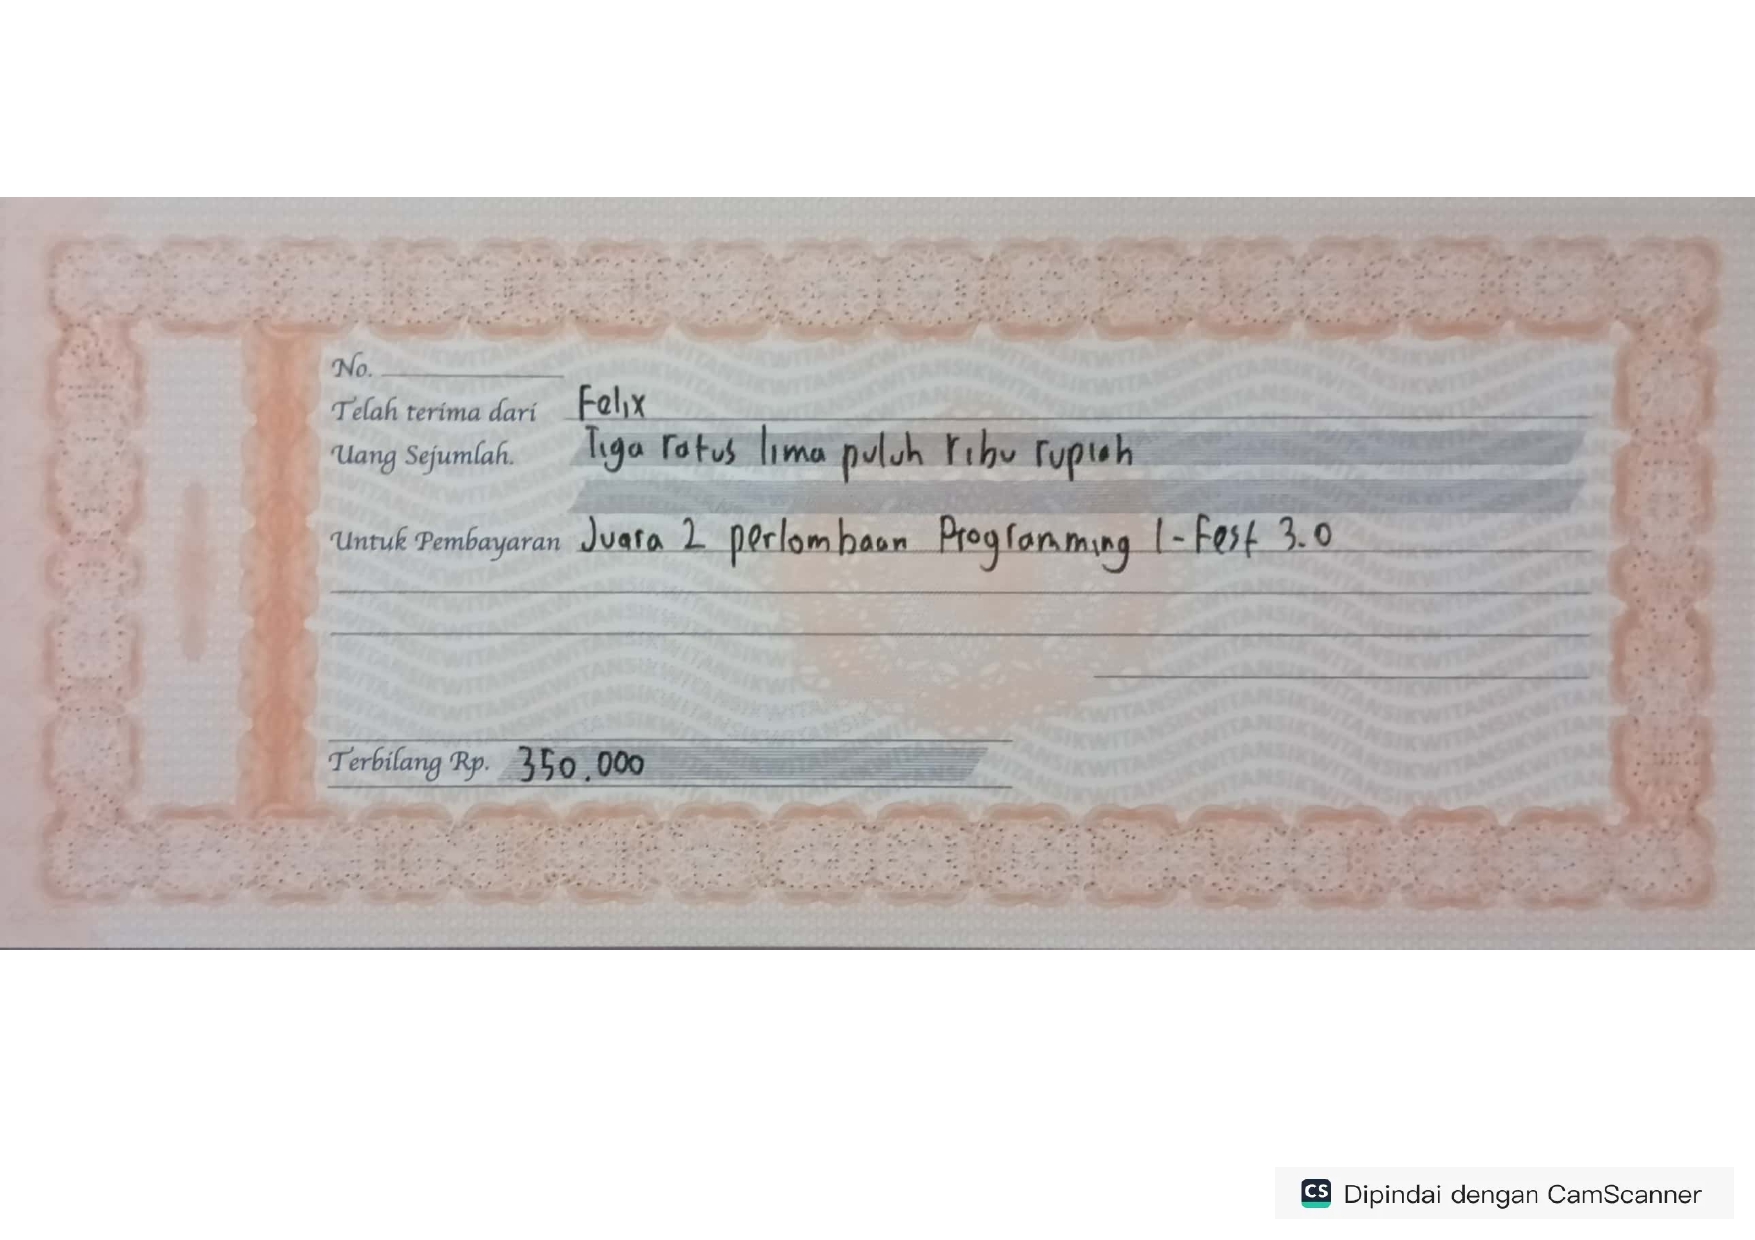 No.
Telah terima dari Felix
Uang Sejumlah. Tiga ratus lima puluh ribu rupiah
Untuk Pembayaran Juara 2 perlombaan Programming I-Fest 3.0
Terbilang Rp. 350.000
CS Dipindai dengan CamScanner